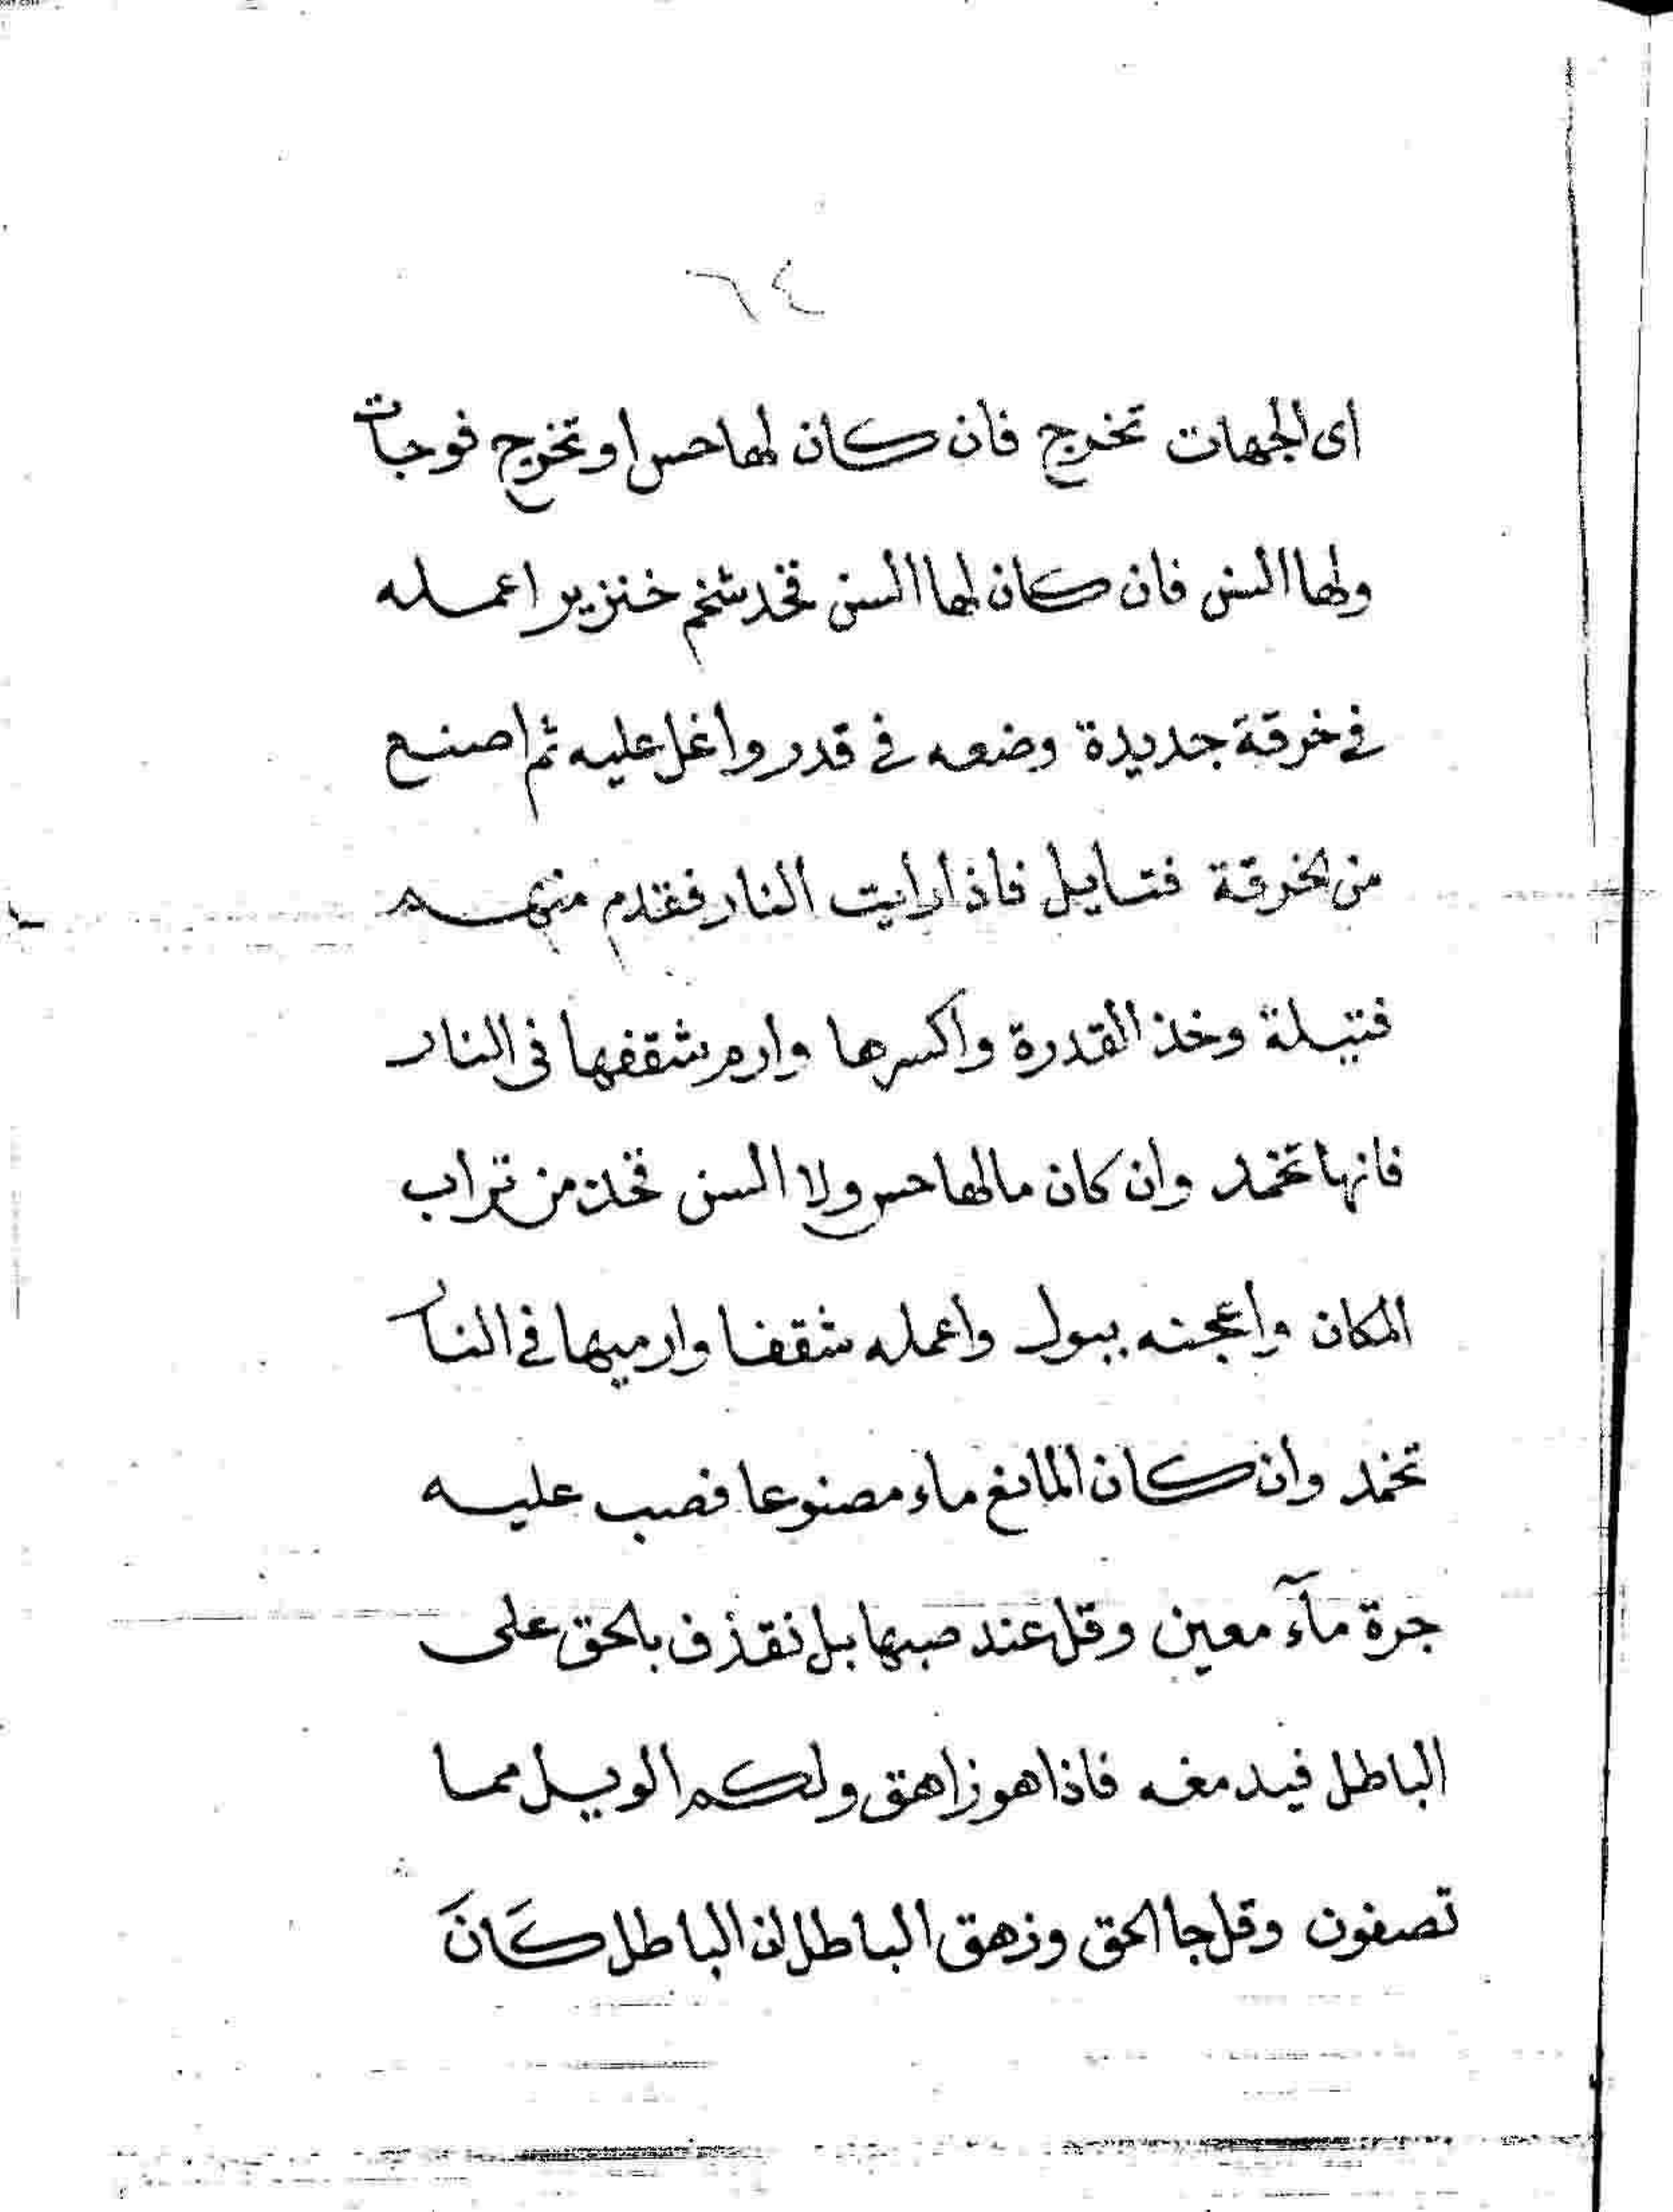 ٦٤
اى الجهات تخرج فان كان لها حس او تخرج فوجات
ولها السن فان كان لها السن فخد شخم خنزير اعمله
فى خرقة جديدة وضعه فى قدر واغل عليه ثم اصنع
من الخرقة فتايل فاذا رايت النار فقدم منهم
فتيلة وخذ القدرة واكسرها وارم شقفها فى النار
فانها تخمد وان كان مالها حس ولا السن فخذ من تراب
المكان واعجنه ببول واعمله شقفا وارميها فى النار
تخمد وان كان المانع ماء مصنوعا فصب عليه
جرة مآء معين وقل عند صبها بل نقذف بالحق على
الباطل فيدمغه فاذا هو زاهق ولكم الويل مما
تصفون وقل جا الحق وزهق الباطل ان الباطل كَانَ